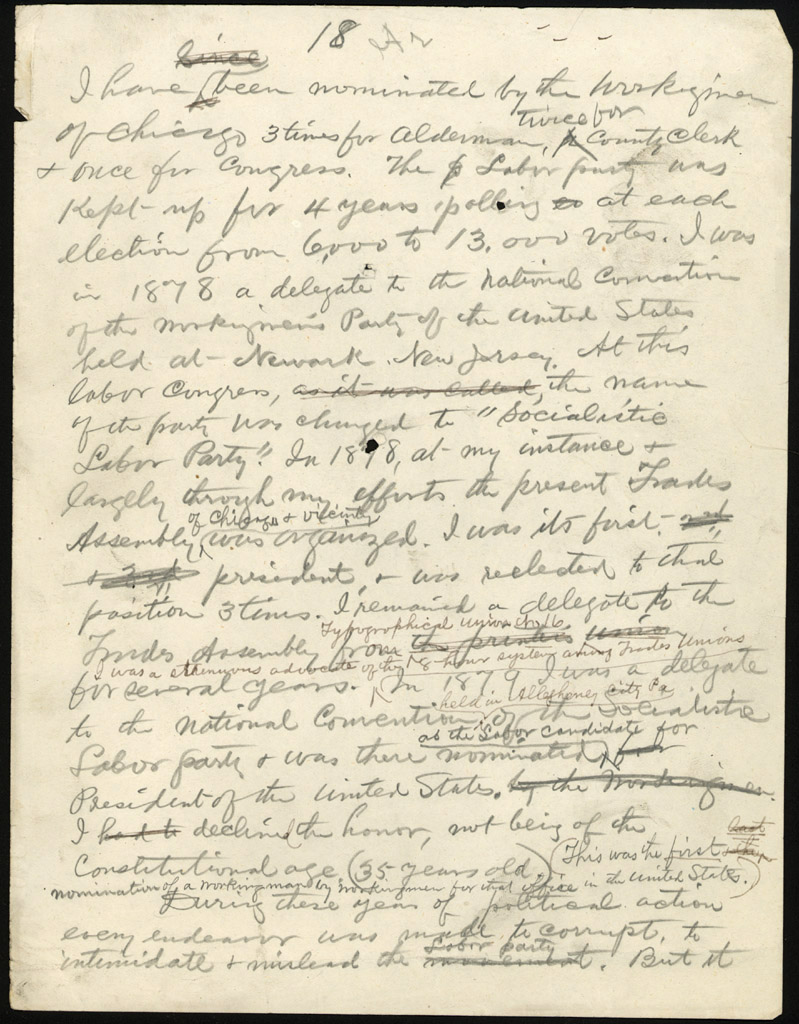 18
Since
I have been nominated by the Workigmen
twice for
of Chicago 3 times for Alderman, County Clerk
& once for Congress. The Labor party was
Kept up for 4 years polling at each
election from 6,000 to 13,000 votes. I was
in 1878 a delegate to the National Convention
of the Workigmen's Party of the United States
held at Newark New Jersey. At this
labor Congress, as it was called, the name
of the party was changed to "Socialistic
Labor Party". In 1878, at my instance &
largely through my efforts the present Trades
of Chicago & vicinity
Assembly was organized. I was its first
president, & was reelected to that
position 3 times. I remained a delegate to the
Typographical Union No. 16
Trades Assembly from the printers union
I was a strenuous advocate of the 8 hour system among Trades Unions
for several years. In 1879 I was a delegate
held in Allegheny City Pa
to the National Convention of the Socialistic
as the Labor Candidate for
Labor party & was there nominated for
President of the United States. by the Workingmen.
I had to declined the honor, not being of the
Constitutional age (35 years old.) (This was the first
nomination of a workingman by workingmen for that office in the United States.)
During these years of political action
every endeavor was made to corrupt, to
Labor party
intimidate & mislead the movement. But it